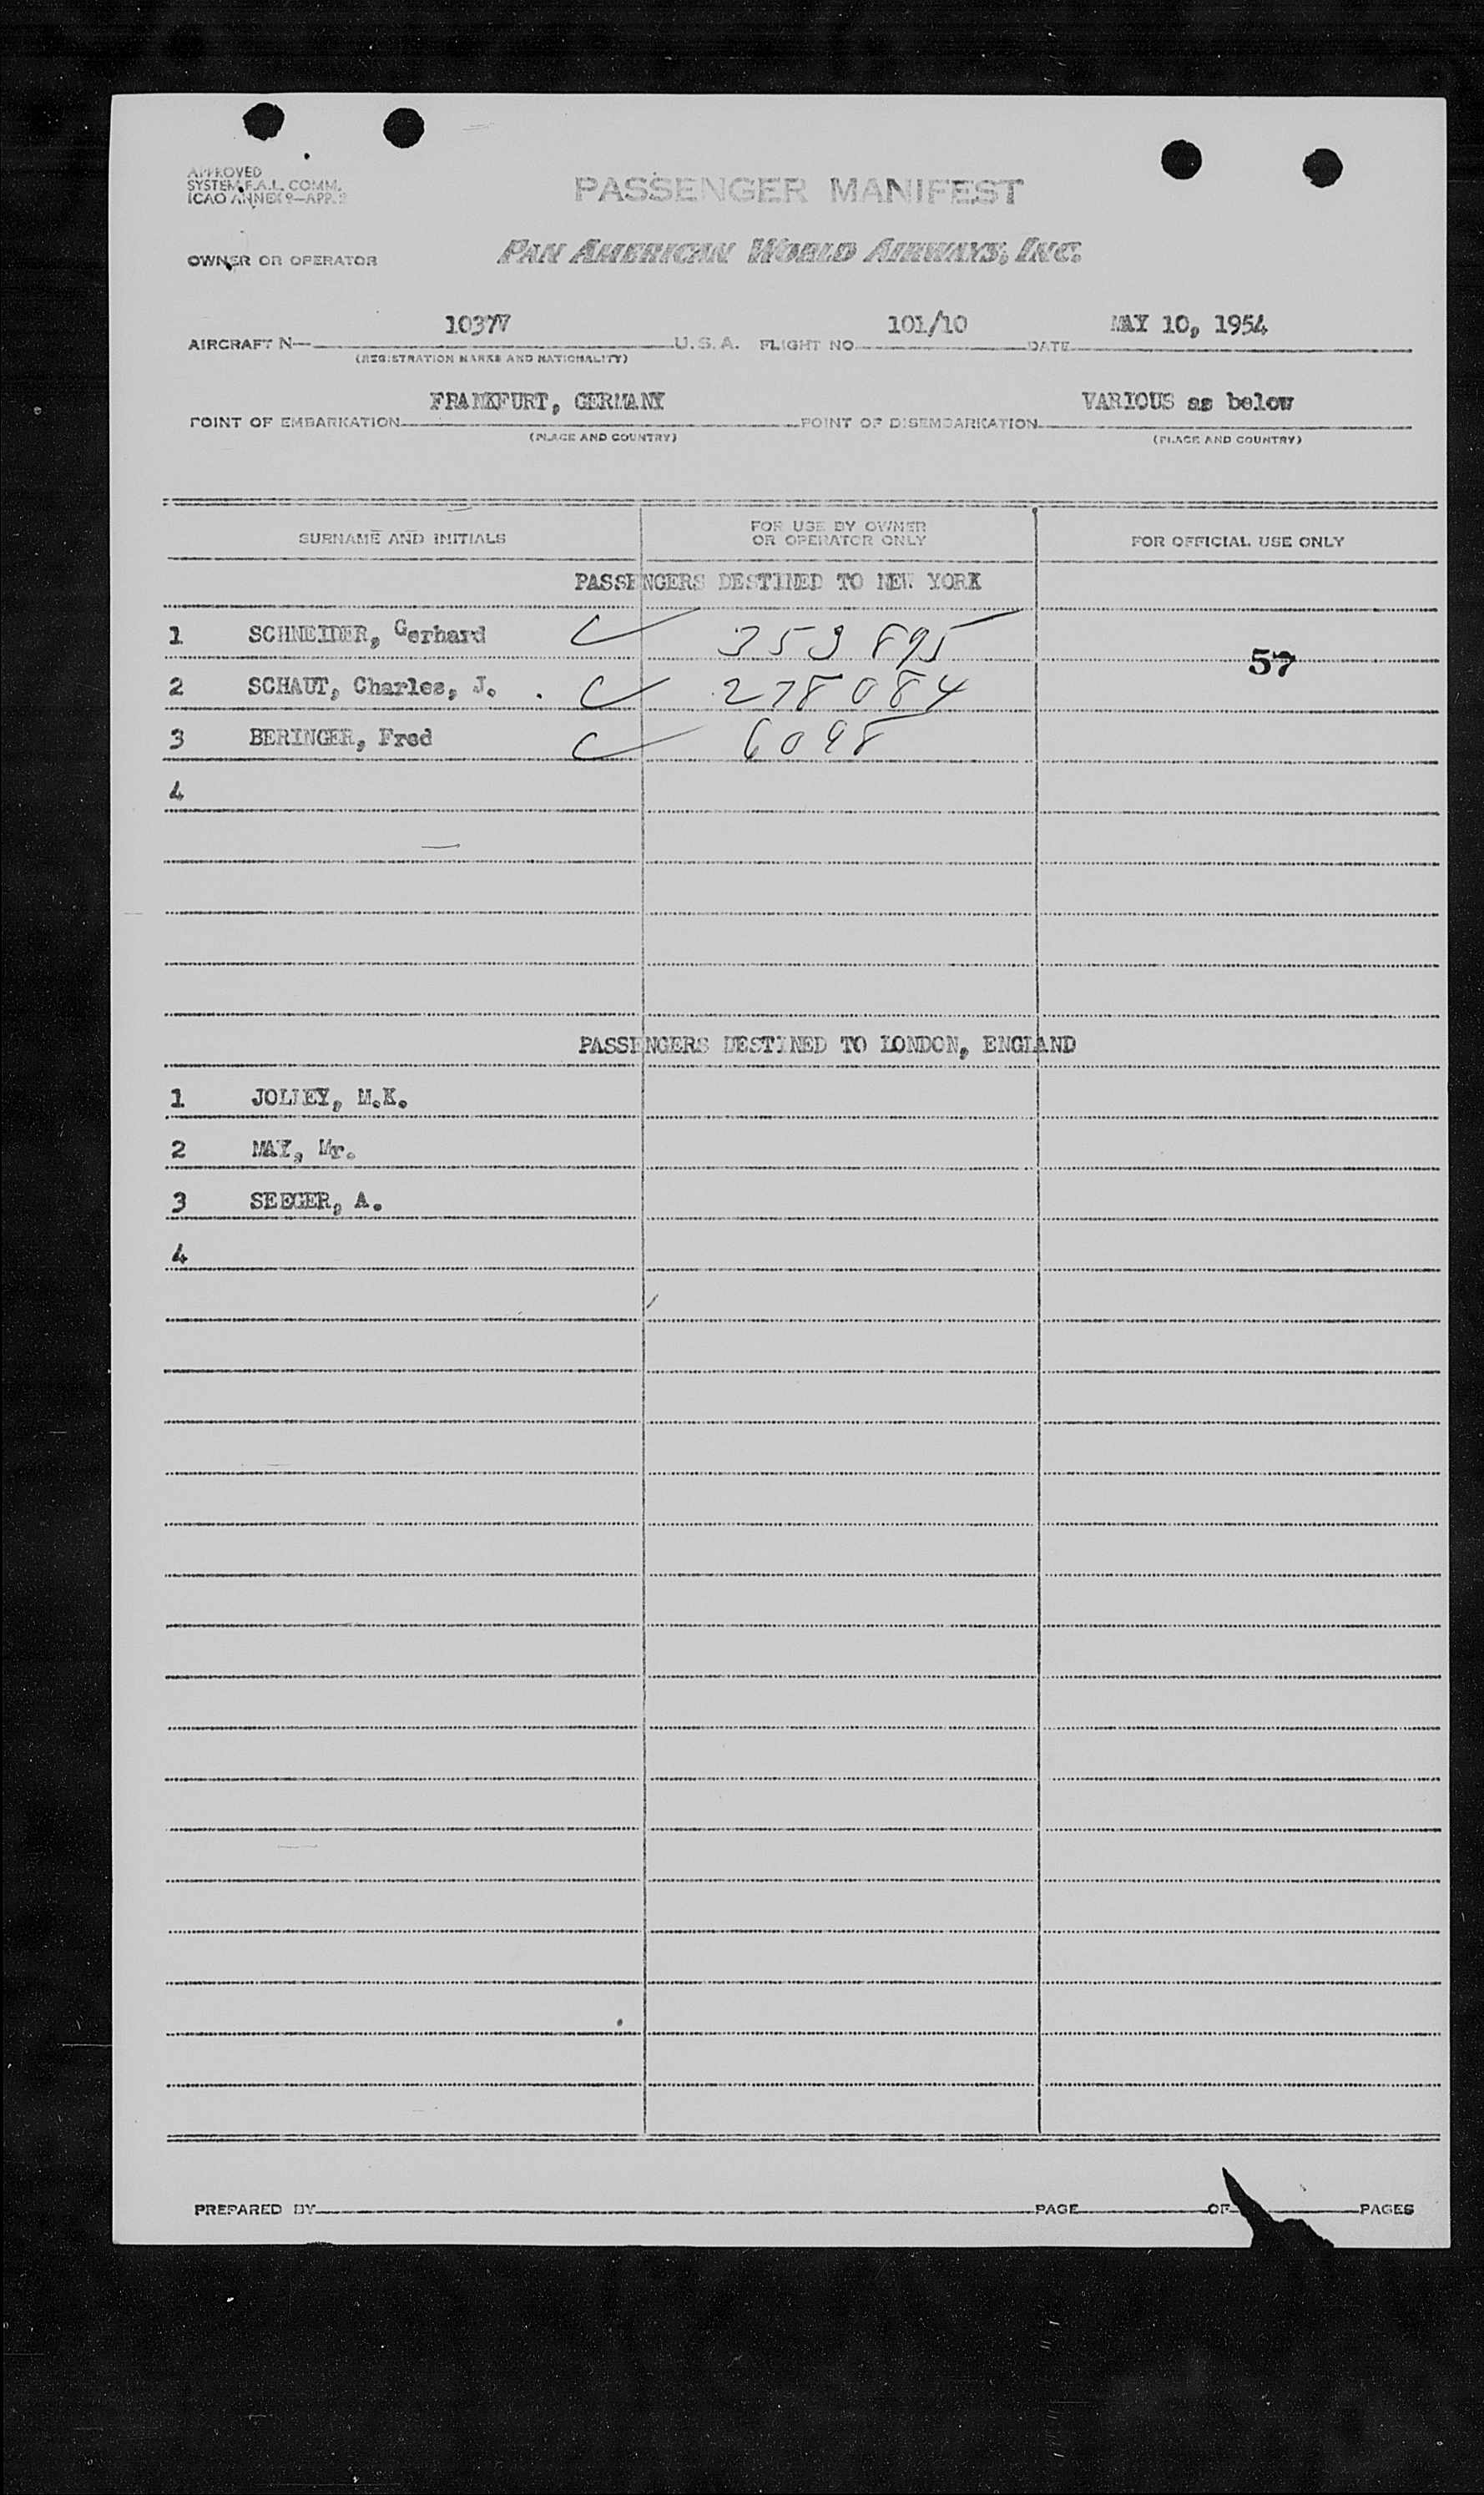 APPROVED
SYSTEM F.A.L. COMM.
ICAO ANNEX 9—APP. 2
PASSENGER MANIFEST
OWNER OR OPERATOR PAN AMERICAN WORLD AIRWAYS, INC.
AIRCRAFT N— 1037V U.S.A. FLIGHT NO. 101/10 DATE MAY 10, 1954
(REGISTRATION MARKS AND NATIONALITY)
POINT OF EMBARKATION FRANKFURT, GERMANY POINT OF DISEMBARKATION VARIOUS as below
(PLACE AND COUNTRY) (PLACE AND COUNTRY)
SURNAME AND INITIALS FOR USE BY OWNER OR OPERATOR ONLY FOR OFFICIAL USE ONLY
PASSENGERS DESTINED TO NEW YORK
1 SCHNEIDER, Gerhard 353 895
57
2 SCHAUT, Charles, J. 278 084
3 BERINGER, Fred 6098
4
PASSENGERS DESTINED TO LONDON, ENGLAND
1 JOLLEY, M.K.
2 MAY, Mr.
3 SEEGER, A.
4
PREPARED BY PAGE OF PAGES